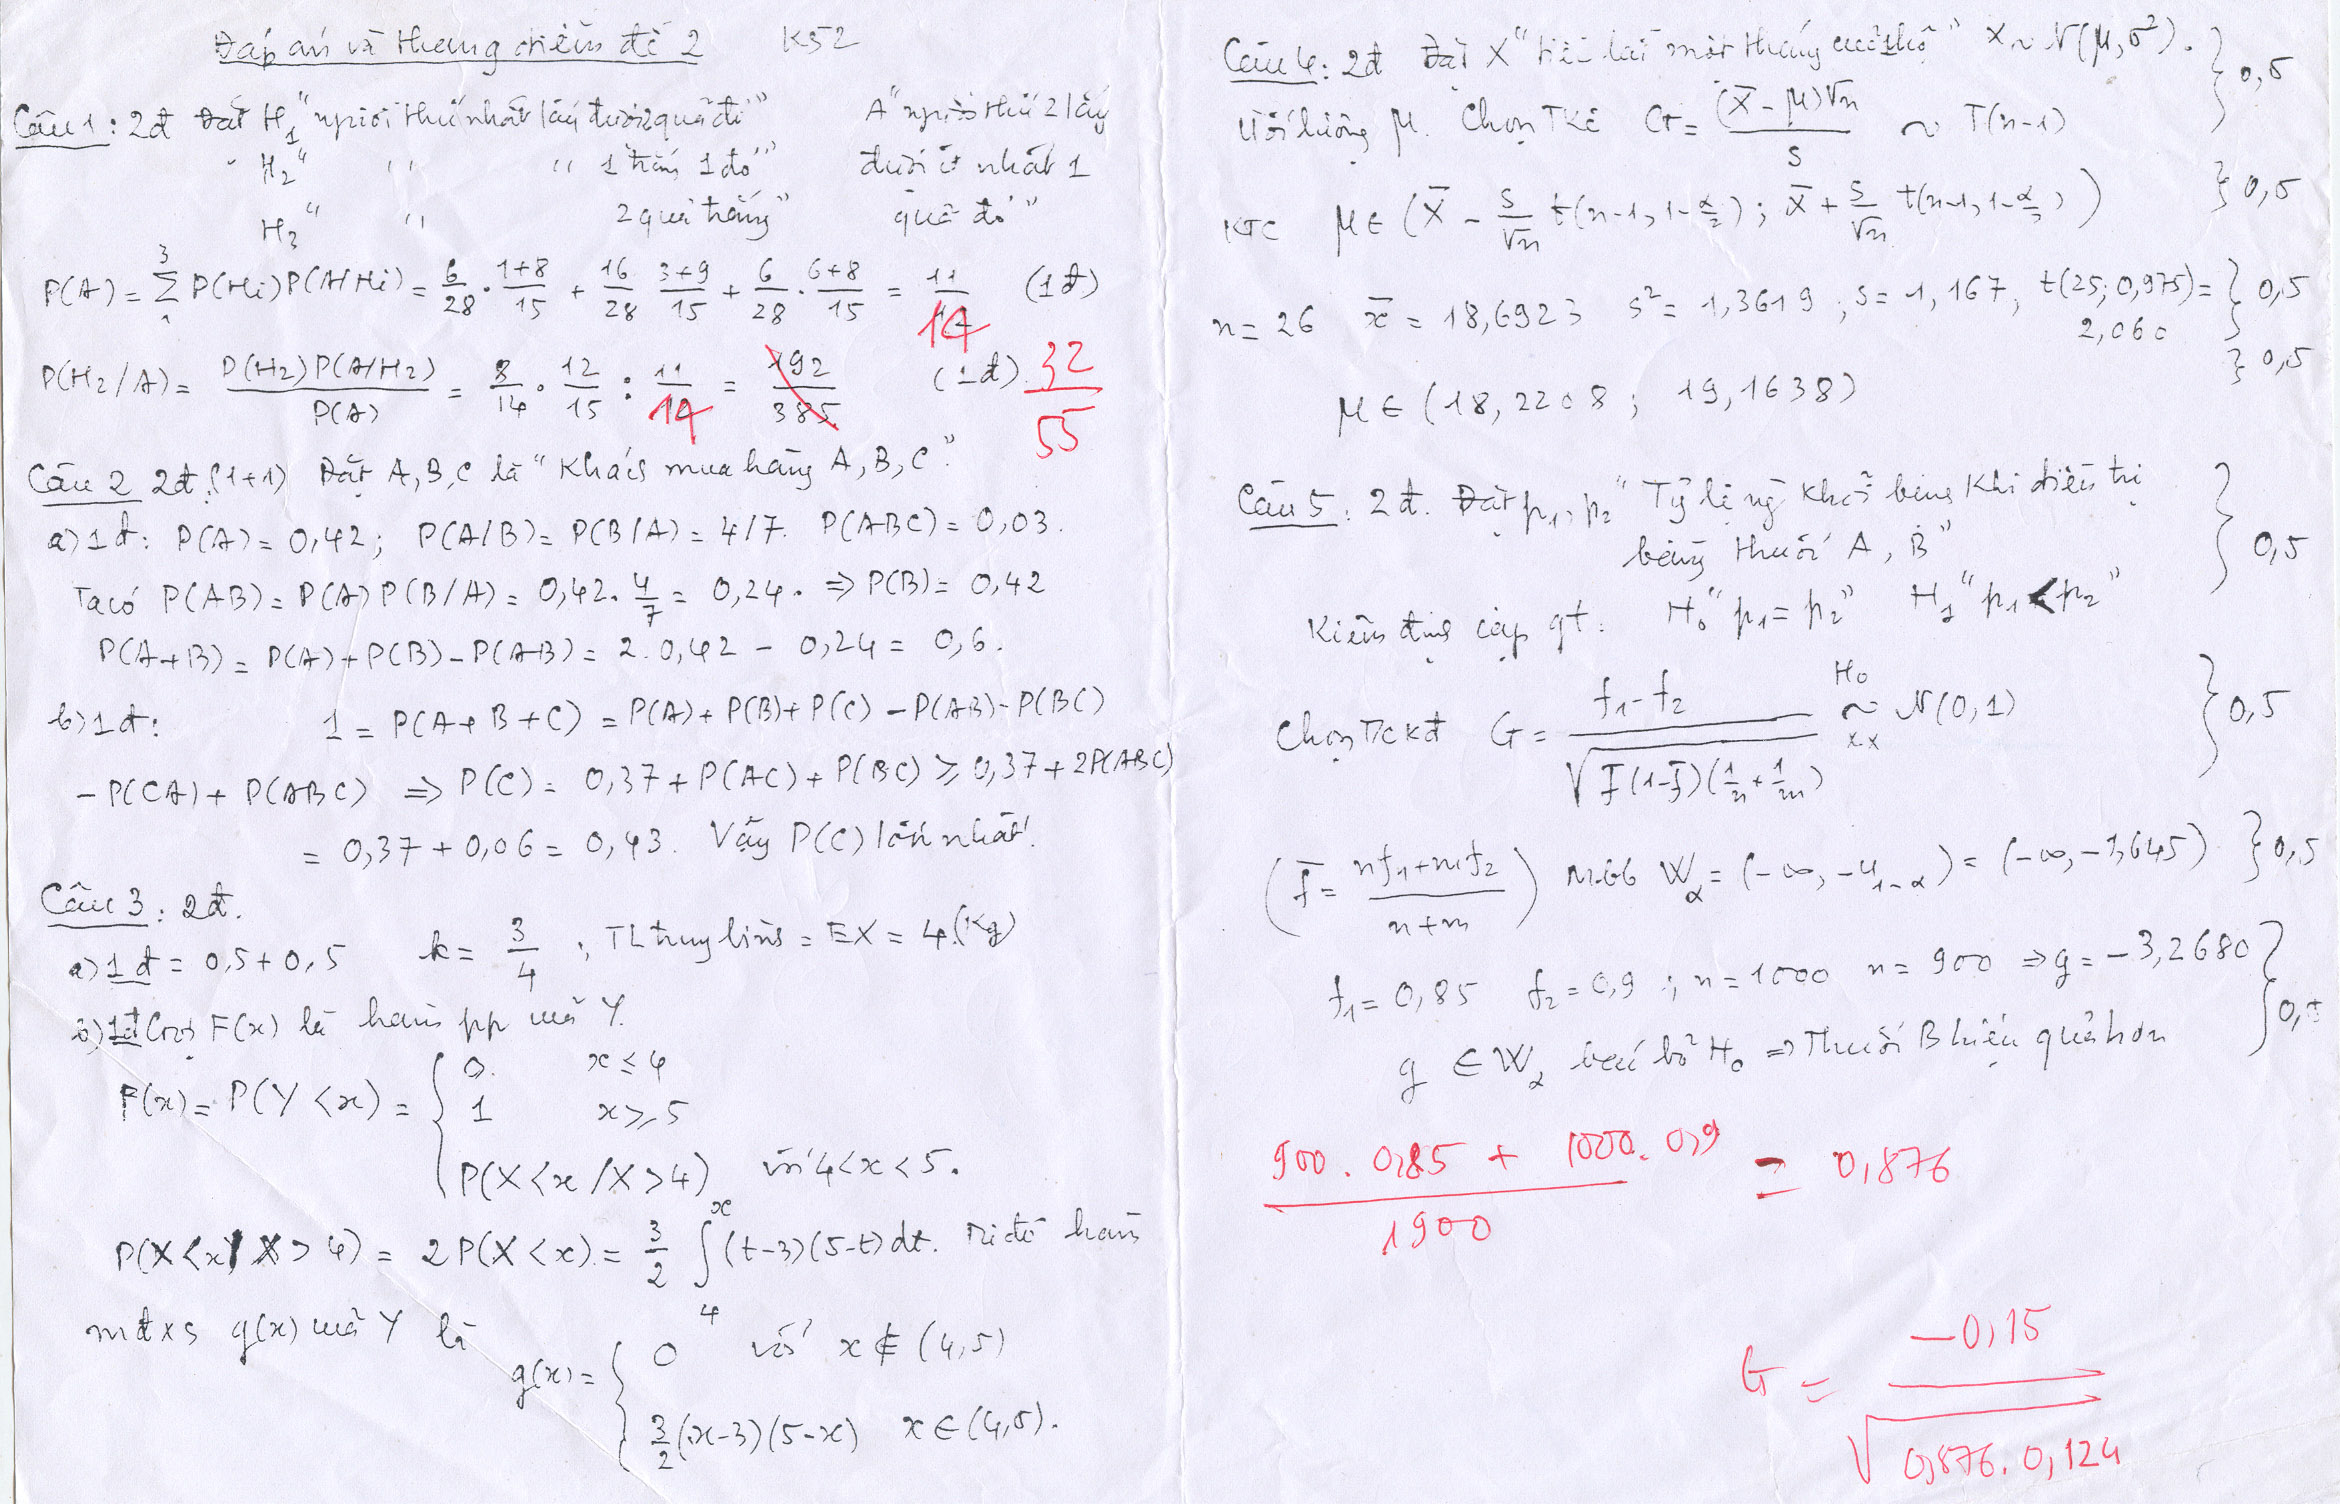 Đáp án và thang điểm đề 2 K52
Câu 1: 2đ Đặt H₁ "người thứ nhất lấy được 2 quả đỏ" A "người thứ 2 lấy
H₂ " " " 1 trắng 1 đỏ" được ít nhất 1
H₃ " " 2 quả trắng" quả đỏ"
P(A) = Σ₁³ P(Hi)P(A/Hi) = 6/28 · (1+8)/15 + 16/28 · (3+9)/15 + 6/28 · (6+8)/15 = 11/14 (1đ)
P(H₂/A) = P(H₂)P(A/H₂)/P(A) = 8/14 · 12/15 : 11/14 = 192/385 (1đ) 32/55
Câu 2 2đ (1+1) Đặt A, B, C là "Khách mua hàng A, B, C".
a) 1đ: P(A) = 0,42; P(A/B) = P(B/A) = 4/7. P(ABC) = 0,03.
Ta có P(AB) = P(A)P(B/A) = 0,42 · 4/7 = 0,24. ⇒ P(B) = 0,42
P(A+B) = P(A) + P(B) – P(AB) = 2.0,42 – 0,24 = 0,6.
b) 1đ: 1 = P(A+B+C) = P(A) + P(B) + P(C) – P(AB) – P(BC)
– P(CA) + P(ABC) ⇒ P(C) = 0,37 + P(AC) + P(BC) ≥ 0,37 + 2P(ABC)
= 0,37 + 0,06 = 0,43. Vậy P(C) lớn nhất.
Câu 3: 2đ.
a) 1đ = 0,5 + 0,5 k = 3/4 ; TL trung bình = EX = 4 (Kg)
b) 1đ Gọi F(x) là hàm pp của Y.
F(x) = P(Y < x) = { 0. x ≤ 4
1 x ≥ 5
P(X < x / X > 4) với 4 < x < 5.
P(X < x / X > 4) = 2P(X < x) = 3/2 ∫₄ˣ (t–3)(5–t)dt. Từ đó hàm
mđxs g(x) của Y là
g(x) = { 0 với x ∉ (4,5)
3/2 (x–3)(5–x) x ∈ (4,5).
Câu 4: 2đ Đặt X "tiền lãi một tháng của 1 hộ" X ~ N(μ, σ²). } 0,5
Ước lượng μ. Chọn TKê G = (X̄ – μ)√n / s ~ T(n–1)
KTC μ ∈ (X̄ – s/√n t(n–1, 1–α/2); X̄ + s/√n t(n–1, 1–α/2)) } 0,5
n = 26 x̄ = 18,6923 s² = 1,3619; s = 1,167; t(25; 0,975) = 2,060 } 0,5
μ ∈ (18,2208 ; 19,1638) } 0,5
Câu 5: 2đ. Đặt p₁, p₂ "Tỷ lệ ng khỏi bệnh khi điều trị
bằng thuốc A, B" } 0,5
Kiểm định cặp gt: H₀ "p₁ = p₂" H₁ "p₁ < p₂"
Chọn TCKđ G = (f₁ – f₂) / √(f̄(1–f̄)(1/n + 1/m)) ~ N(0,1) } 0,5
H₀
xx
(f̄ = (nf₁ + mf₂)/(n+m)) MBB Wα = (–∞, –u₁₋α) = (–∞, –1,645) } 0,5
f₁ = 0,85 f₂ = 0,9 ; n = 1000 n = 900 ⇒ g = –3,2680
g ∈ Wα bác bỏ H₀ ⇒ Thuốc B hiệu quả hơn } 0,5
(900 . 0,85 + 1000 . 0,9) / 1900 = 0,876
G = –0,15 / √(0,876 . 0,124